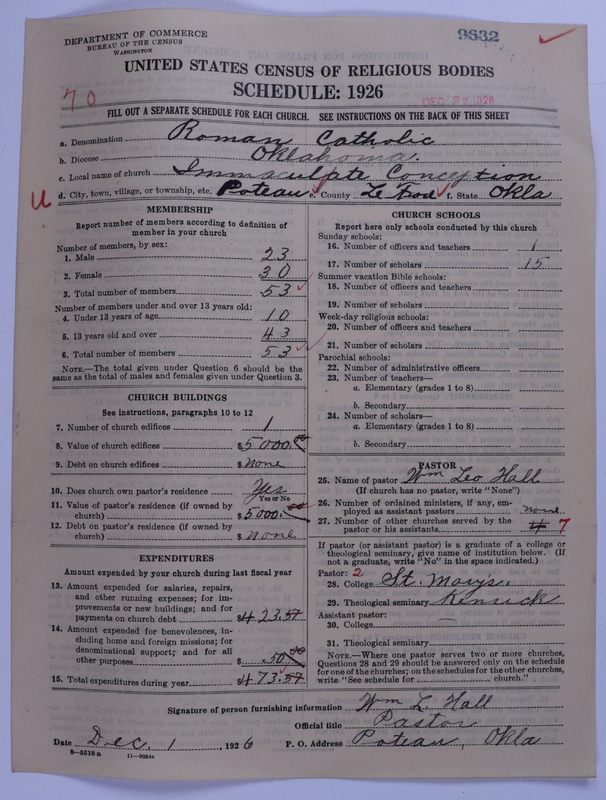 DEPARTMENT OF COMMERCE
BUREAU OF THE CENSUS
WASHINGTON
9632
UNITED STATES CENSUS OF RELIGIOUS BODIES
SCHEDULE: 1926
70
DEC 27 1926
FILL OUT A SEPARATE SCHEDULE FOR EACH CHURCH. SEE INSTRUCTIONS ON THE BACK OF THIS SHEET
a. Denomination Roman Catholic
b. Diocese Oklahoma.
c. Local name of church Immaculate Conception
d. City, town, village, or township, etc. Poteau e. County Le Flore f. State Okla
MEMBERSHIP
Report number of members according to definition of
member in your church
Number of members, by sex:
1. Male 23
2. Female 30
3. Total number of members 53
Number of members under and over 13 years old:
4. Under 13 years of age 10
5. 13 years old and over 43
6. Total number of members 53
NOTE.—The total given under Question 6 should be
same as the total of males and females given under Question 3.
CHURCH BUILDINGS
See instructions, paragraphs 10 to 12
7. Number of church edifices 1
8. Value of church edifices $5000.00
9. Debt on church edifices $none
10. Does church own pastor's residence Yes
Yes or No
11. Value of pastor's residence (if owned by
church) $5000.00
12. Debt on pastor's residence (if owned by
church) $none
EXPENDITURES
Amount expended by your church during last fiscal year
13. Amount expended for salaries, repairs,
and other running expenses; for im-
provements or new buildings; and for
payments on church debt $423.57
14. Amount expended for benevolences, in-
cluding home and foreign missions; for
denominational support; and for all
other purposes $50.00
15. Total expenditures during year $473.57
CHURCH SCHOOLS
Report here only schools conducted by this church
Sunday schools:
16. Number of officers and teachers 1
17. Number of scholars 15
Summer vacation Bible schools:
18. Number of officers and teachers
19. Number of scholars
Week-day religious schools:
20. Number of officers and teachers
21. Number of scholars
Parochial schools:
22. Number of administrative officers
23. Number of teachers—
a. Elementary (grades 1 to 8)
b. Secondary
24. Number of scholars—
a. Elementary (grades 1 to 8)
b. Secondary
PASTOR
25. Name of pastor Wm Leo Hall
(If church has no pastor, write "None")
26. Number of ordained ministers, if any, em-
ployed as assistant pastors none
27. Number of other churches served by the
pastor or his assistants 7
If pastor (or assistant pastor) is a graduate of a college or
theological seminary, give name of institution below. (If
not a graduate, write "No" in the space indicated.)
Pastor: 2
28. College St. Marys.
29. Theological seminary Kenrick
Assistant pastor: —
30. College
31. Theological seminary
NOTE.—Where one pastor serves two or more churches,
Questions 28 and 29 should be answered only on the schedule
for one of the churches; on the schedules for the other churches,
write "See schedule for church."
Signature of person furnishing information Wm L. Hall
Official title Pastor
Date Dec. 1, 1926 P. O. Address Poteau, Okla
8—5518 a 11—9034a